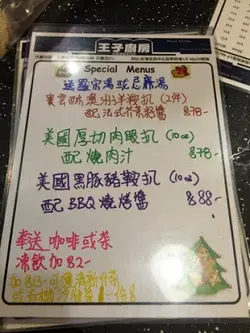 王子廚房
Special Menus
送羅宋湯或忌廉湯
東雲西班澳洲羊鞍扒 (2件)
配法式芥末籽醬 $78-
美國厚切肉眼扒 (10oz)
配燒肉汁 $78-
美國黑豚豬鞍扒 (10oz)
配BBQ燒烤醬 $88-
奉送咖啡或茶
凍飲加$2-